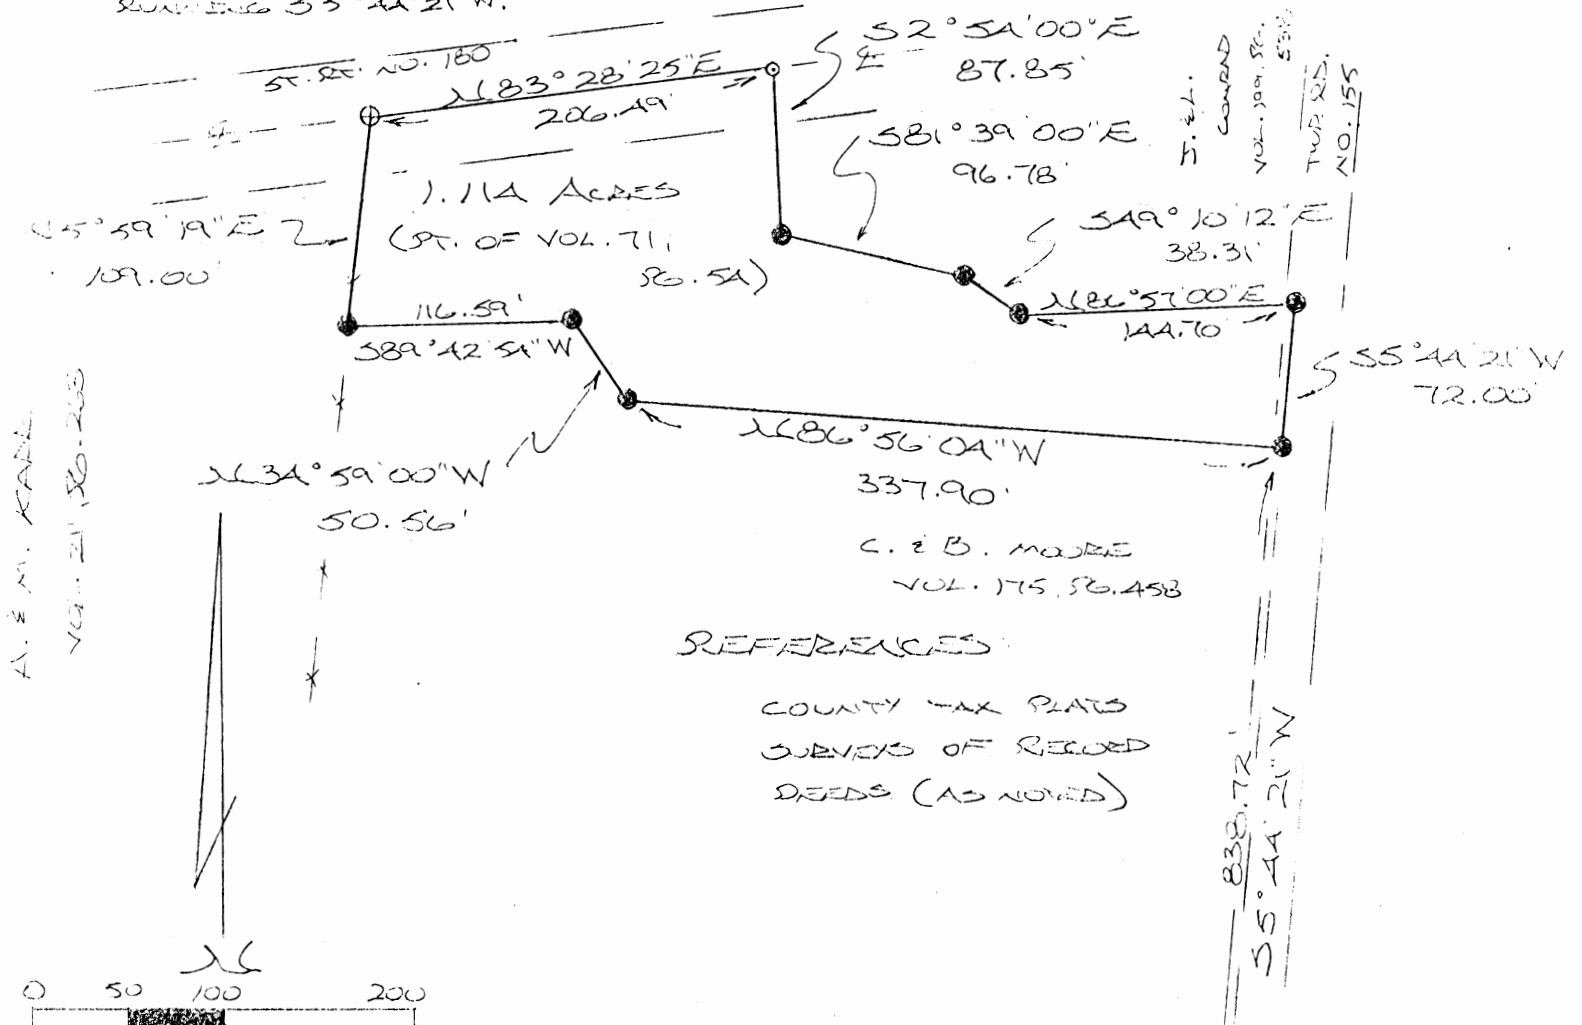 RUNNING S5°44'21"W.
ST. RT. NO. 180
N83°28'25"E
206.49'
S2°54'00"E
87.85'
S81°39'00"E
96.78'
J. & L.
CONRAD
VOL. 199, PG.
TWP. RD.
NO. 155
1.114 ACRES
(PT. OF VOL. 71,
PG. 54)
N5°59'19"E
109.00'
S49°10'12"E
38.31'
N86°57'00"E
144.70'
116.59'
S89°42'54"W
S5°44'21"W
72.00'
N86°56'04"W
337.90'
N34°59'00"W
50.56'
A. & M. KARR
VOL. 21, PG. 268
C. & B. MOORE
VOL. 175, PG. 458
REFERENCES
COUNTY TAX PLATS
SURVEYS OF RECORD
DEEDS (AS NOTED)
838.72'
S5°44'21"W
N
0 50 100 200